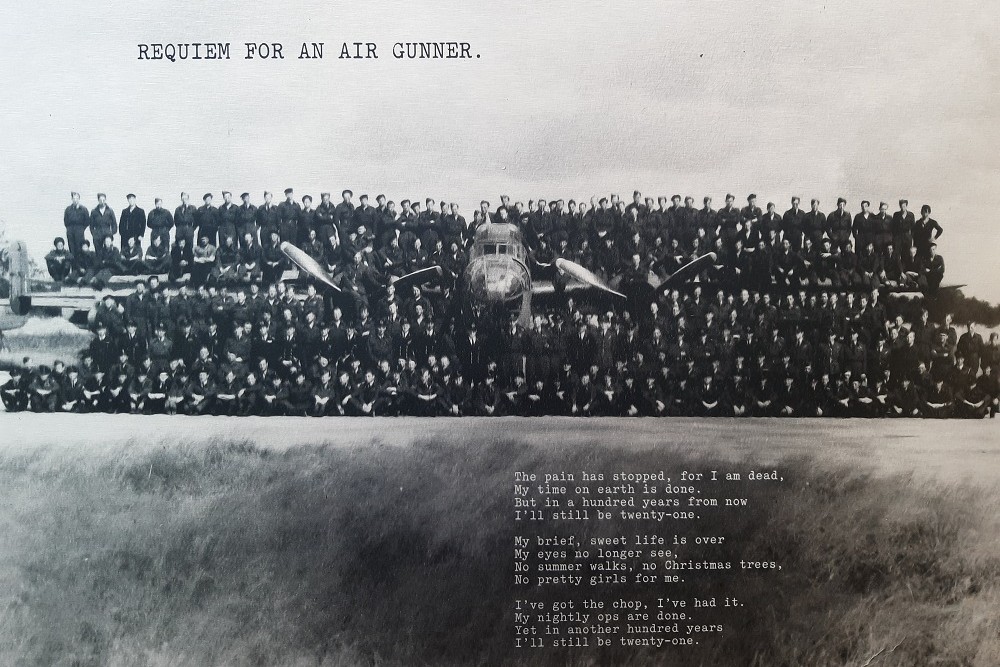 REQUIEM FOR AN AIR GUNNER.
The pain has stopped, for I am dead,
My time on earth is done.
But in a hundred years from now
I'll still be twenty-one.
My brief, sweet life is over
My eyes no longer see,
No summer walks, no Christmas trees,
No pretty girls for me.
I've got the chop, I've had it.
My nightly ops are done.
Yet in another hundred years
I'll still be twenty-one.